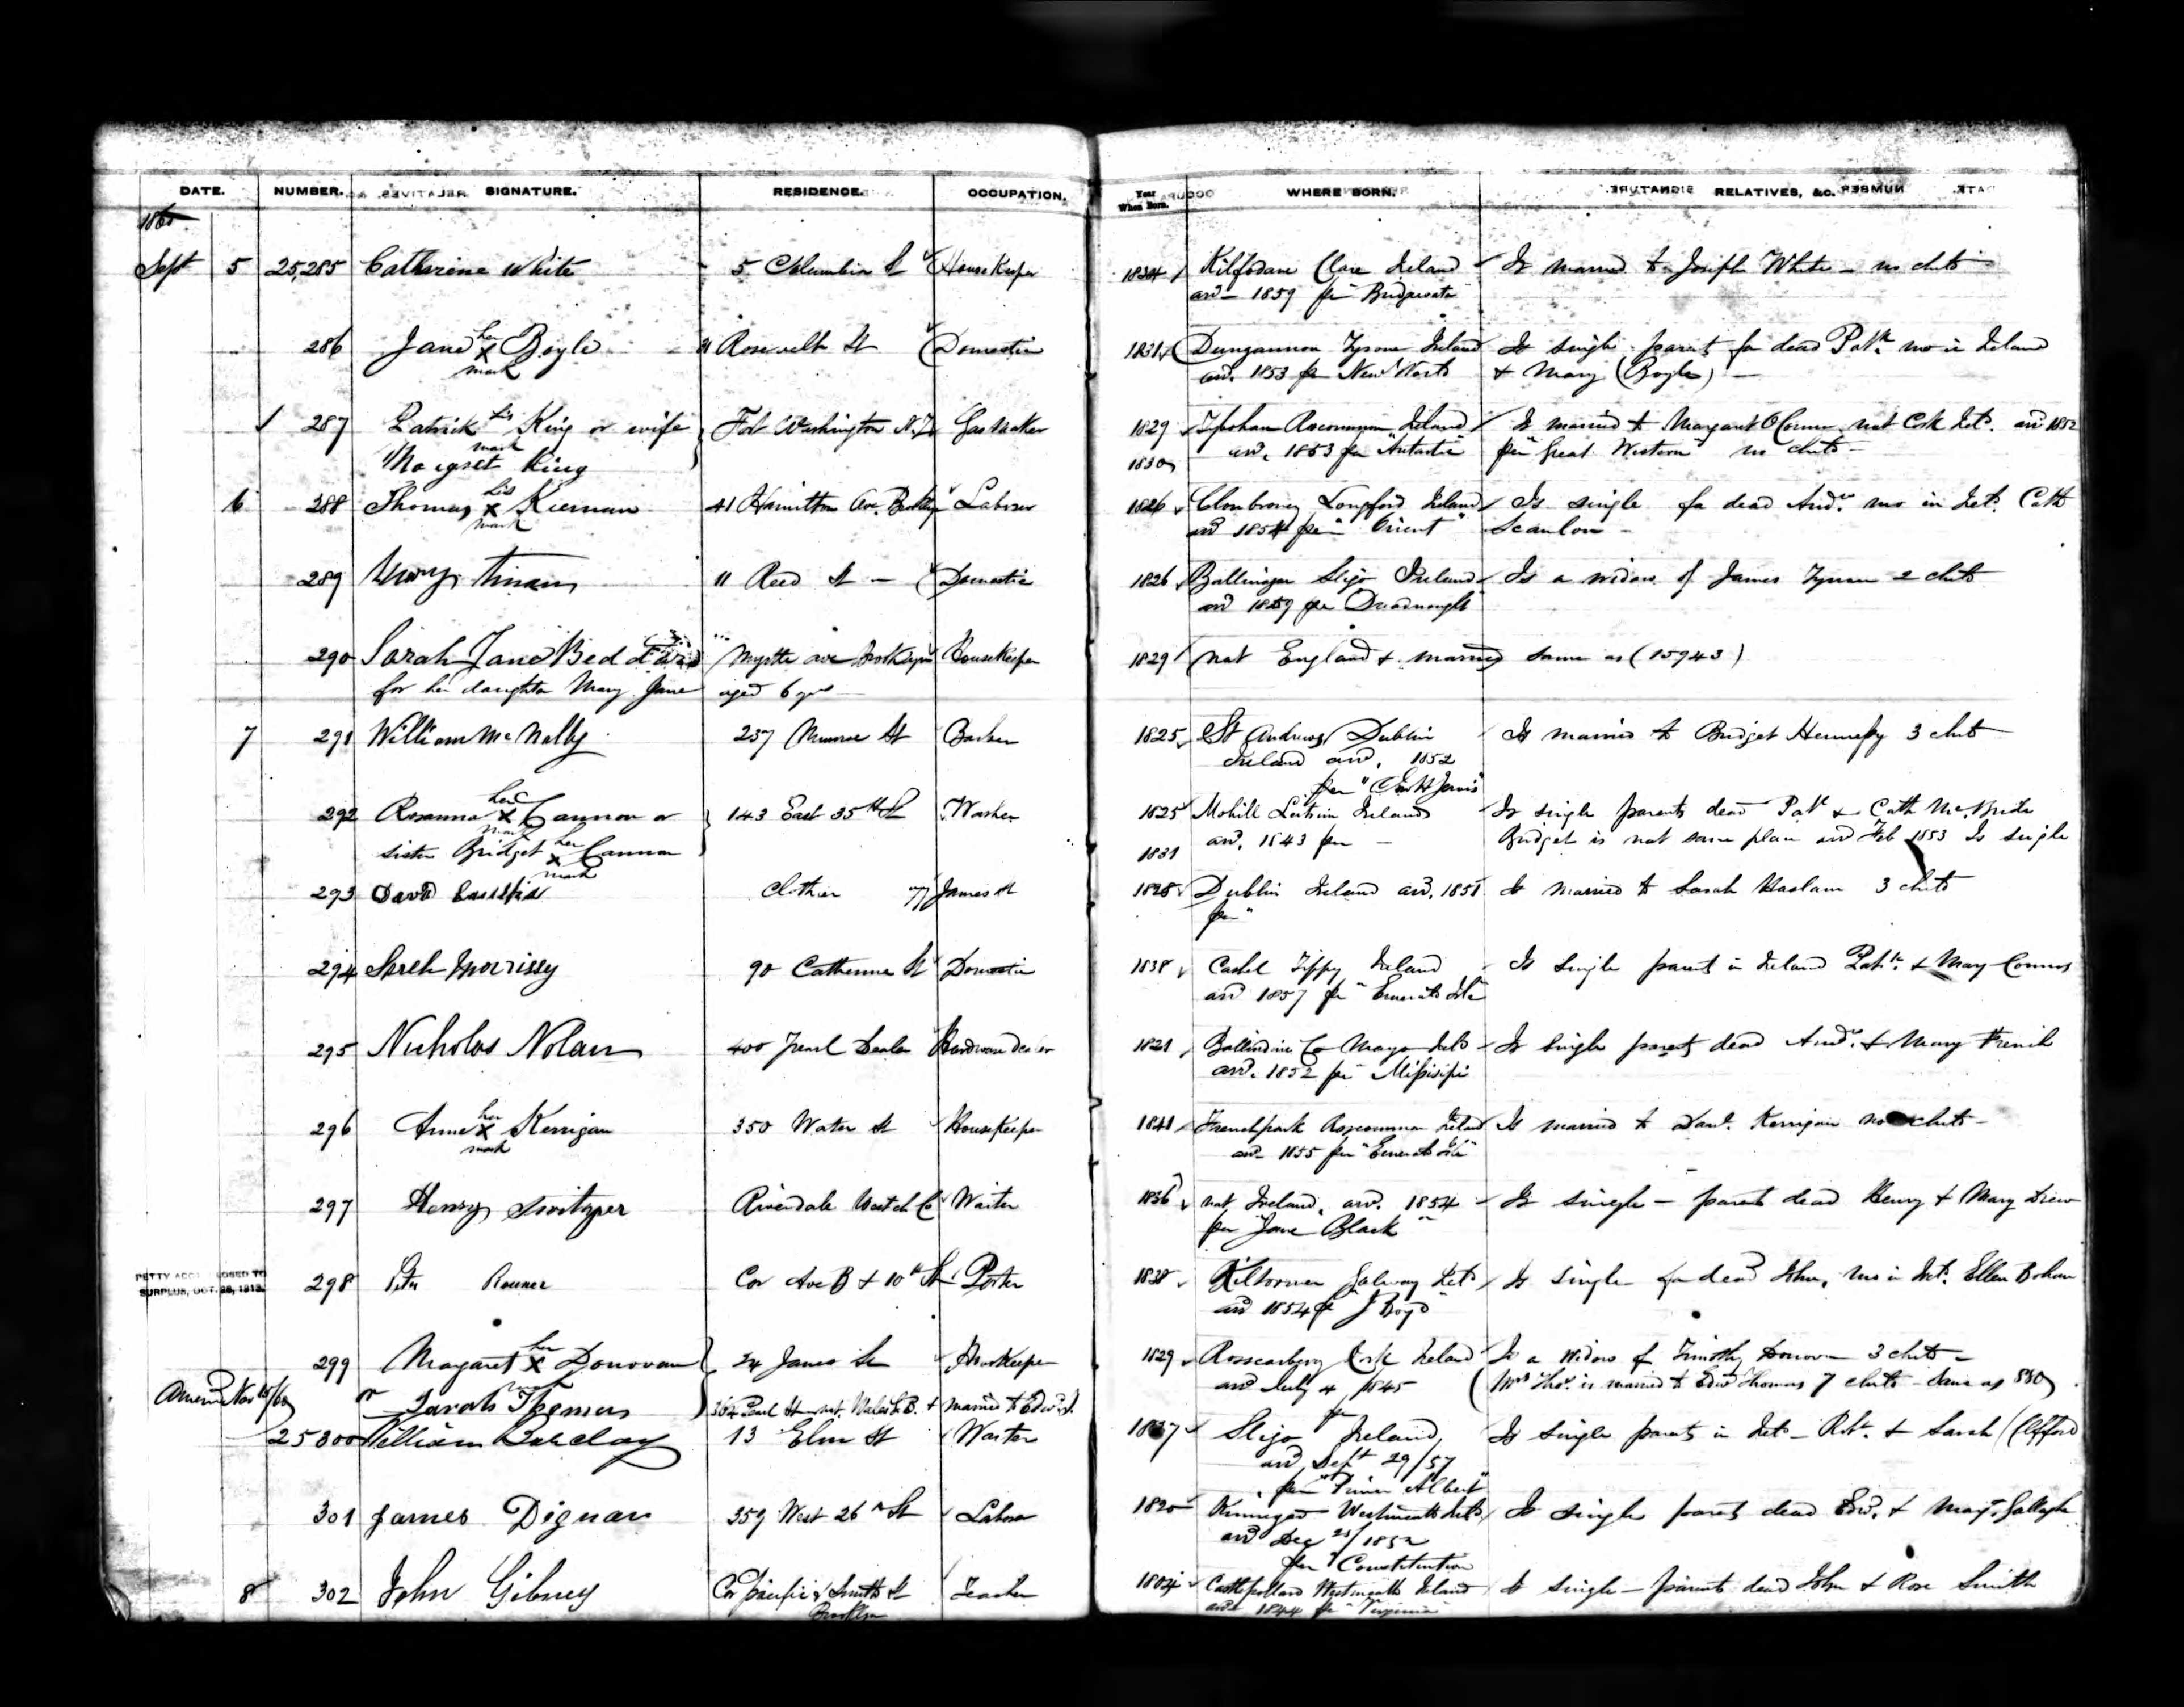 DATE. NUMBER. SIGNATURE. RESIDENCE. OCCUPATION. Year When Born. WHERE BORN. RELATIVES, &C.
1860
Sept 5 25,285 Catherine White 5 Columbia St Housekeeper 1834 Clare Ireland Is married to Joseph White – no chils
arrd – 1859 per Bridgewater
286 Jane her x mark Boyle Roosevelt St Domestic 1831 Dungannon Tyrone Ireland Is single parents fa dead Patk. mo in Ireland
arrd. 1853 per New World & Mary (Boyle) –
287 Patrick his mark King or wife Fort Washington N.Y. Gas Maker 1829 Roscommon Ireland Is married to Margaret OConnor nat Cork Ireld. arrd 1852
Margret King 1830 arrd. 1853 per per "Great Western" no chils –
6 288 Thomas his x mark Kiernan 41 Hamilton Ave. Laborer 1826 Longford Ireland Is single fa dead Andw. mo in Irel. Cath
arrd 1854 per "Orient" Scanlon –
289 11 Reed St – Domestic 1826 Sligo Ireland Is a widow of James Tynan 2 chils
arrd 1859 per Dreadnought
290 Sarah Jane Myrtle ave Brooklyn Housekeeper 1829 nat England & married same as (15943)
for her daughter Mary Jane aged 6 yrs
7 291 William McNally 237 Munroe St 1825 St Andrews Dublin Is married to Bridget Hennessy 3 chils
Ireland arrd. 1852
per
292 Rosanna her x mark Cannon or 143 East 35th St Washer 1825 Mohill Leitrim Ireland Is single parents dead Patk & Cath McBride
sister Bridget her x mark Cannon 1831 arrd. 1843 per – Bridget is nat same place arrd Feb 1853 Is single
293 David Clothier 77 James St 1828 Dublin Ireland arrd. 1851 Is married to Sarah Haslam 3 chils
per "
294 Sareh Morrissy 90 Catherine St Domestic 1838 Cashel Tippy Ireland Is single parents in Ireland Patk. & Mary Connors
arrd 1857 per "Emerald Isle"
295 Nicholas Nolan 400 Pearl Dealer Hardware dealer 1821 Ballindine Co Mayo Ireld Is single parents dead Andw. & Mary French
arrd. 1852 per Missisipi
296 Anne her x mark Kerrigan 350 Water St Housekeeper 1841 Frenchpark Roscommon Ireland Is married to Danl. Kerrigan no chils –
arrd 1855 per "Emerald Isle"
297 Henry Switzer Riverdale Westch Co Waiter 1836 nat. Ireland. arrd. 1854 Is single – parents dead Henry & Mary Drew
per "Jane Black"
PETTY ACC CLOSED TO
SURPLUS, OCT. 28, 1913.
298 Peter Cor Ave B & 10th St Porter 1838 Galway Irel. Is single fa dead John, mo in Irel. Ellen Bohan
arrd 1854 per J Boyd
299 Margaret her x Donovan 24 James St Housekeeper 1829 Rosscarbery Cork Ireland Is a widow of Timothy Donovan 3 chils –
or Sarah Thomas 364 Pearl St nat. Wales & married to Edwd. arrd July 4, 1845 (Mrs Thos. is married to Edwd Thomas 7 chils – same as 830)
per
25300 William Barclay 13 Elm St Waiter 1837 Sligo Ireland, Is single parents in Irel – Robt. & Sarah (Clifford
arrd Sept 29/57
per "Prince Albert"
301 James Dignan 359 West 26th St Laborer 1820 Kinnegad Westmeath Ireld Is single parents dead Edwd. & Margt. Gallagher
arrd Dec 25/1852
per "Constitution
8 302 John Gibney Cor Pacific & Smith St Teacher 1804 Castlepollard Westmeath Ireland Is single – parents dead John & Rose Smith
Brooklyn arrd 1844 per "Virginia"